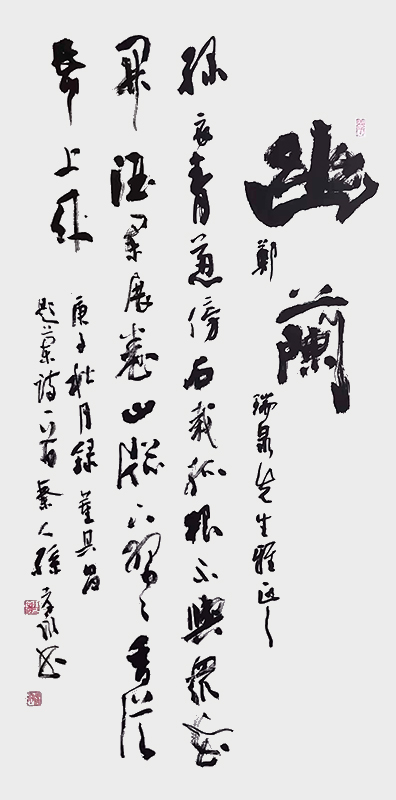 幽蘭
鄭瑞泉先生雅正
綠衣青葱傍石栽孤根不與衆花
開酒闌展卷山窗下習習香從
紙上來
庚子秋月録董其昌
題蘭詩一首 人孫 書